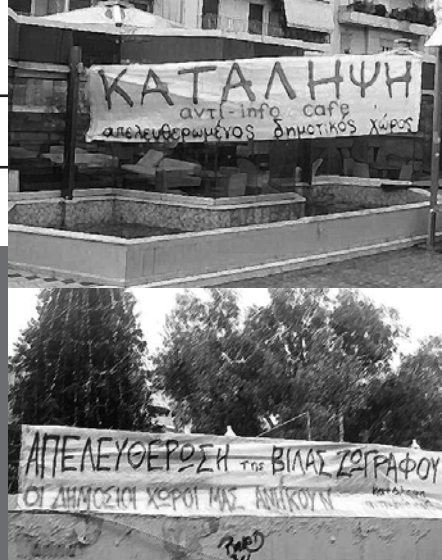 ΚΑΤΑΛΗΨΗ
αντι-info cafe
απελευθερωμένος δημοτικός χώρος
ΑΠΕΛΕΥΘΕΡΩΣΗ της ΒΙΛΑΣ ΖΩΓΡΑΦΟΥ
ΟΙ ΔΗΜΟΣΙΟΙ ΧΩΡΟΙ ΜΑΣ ΑΝΗΚΟΥΝ